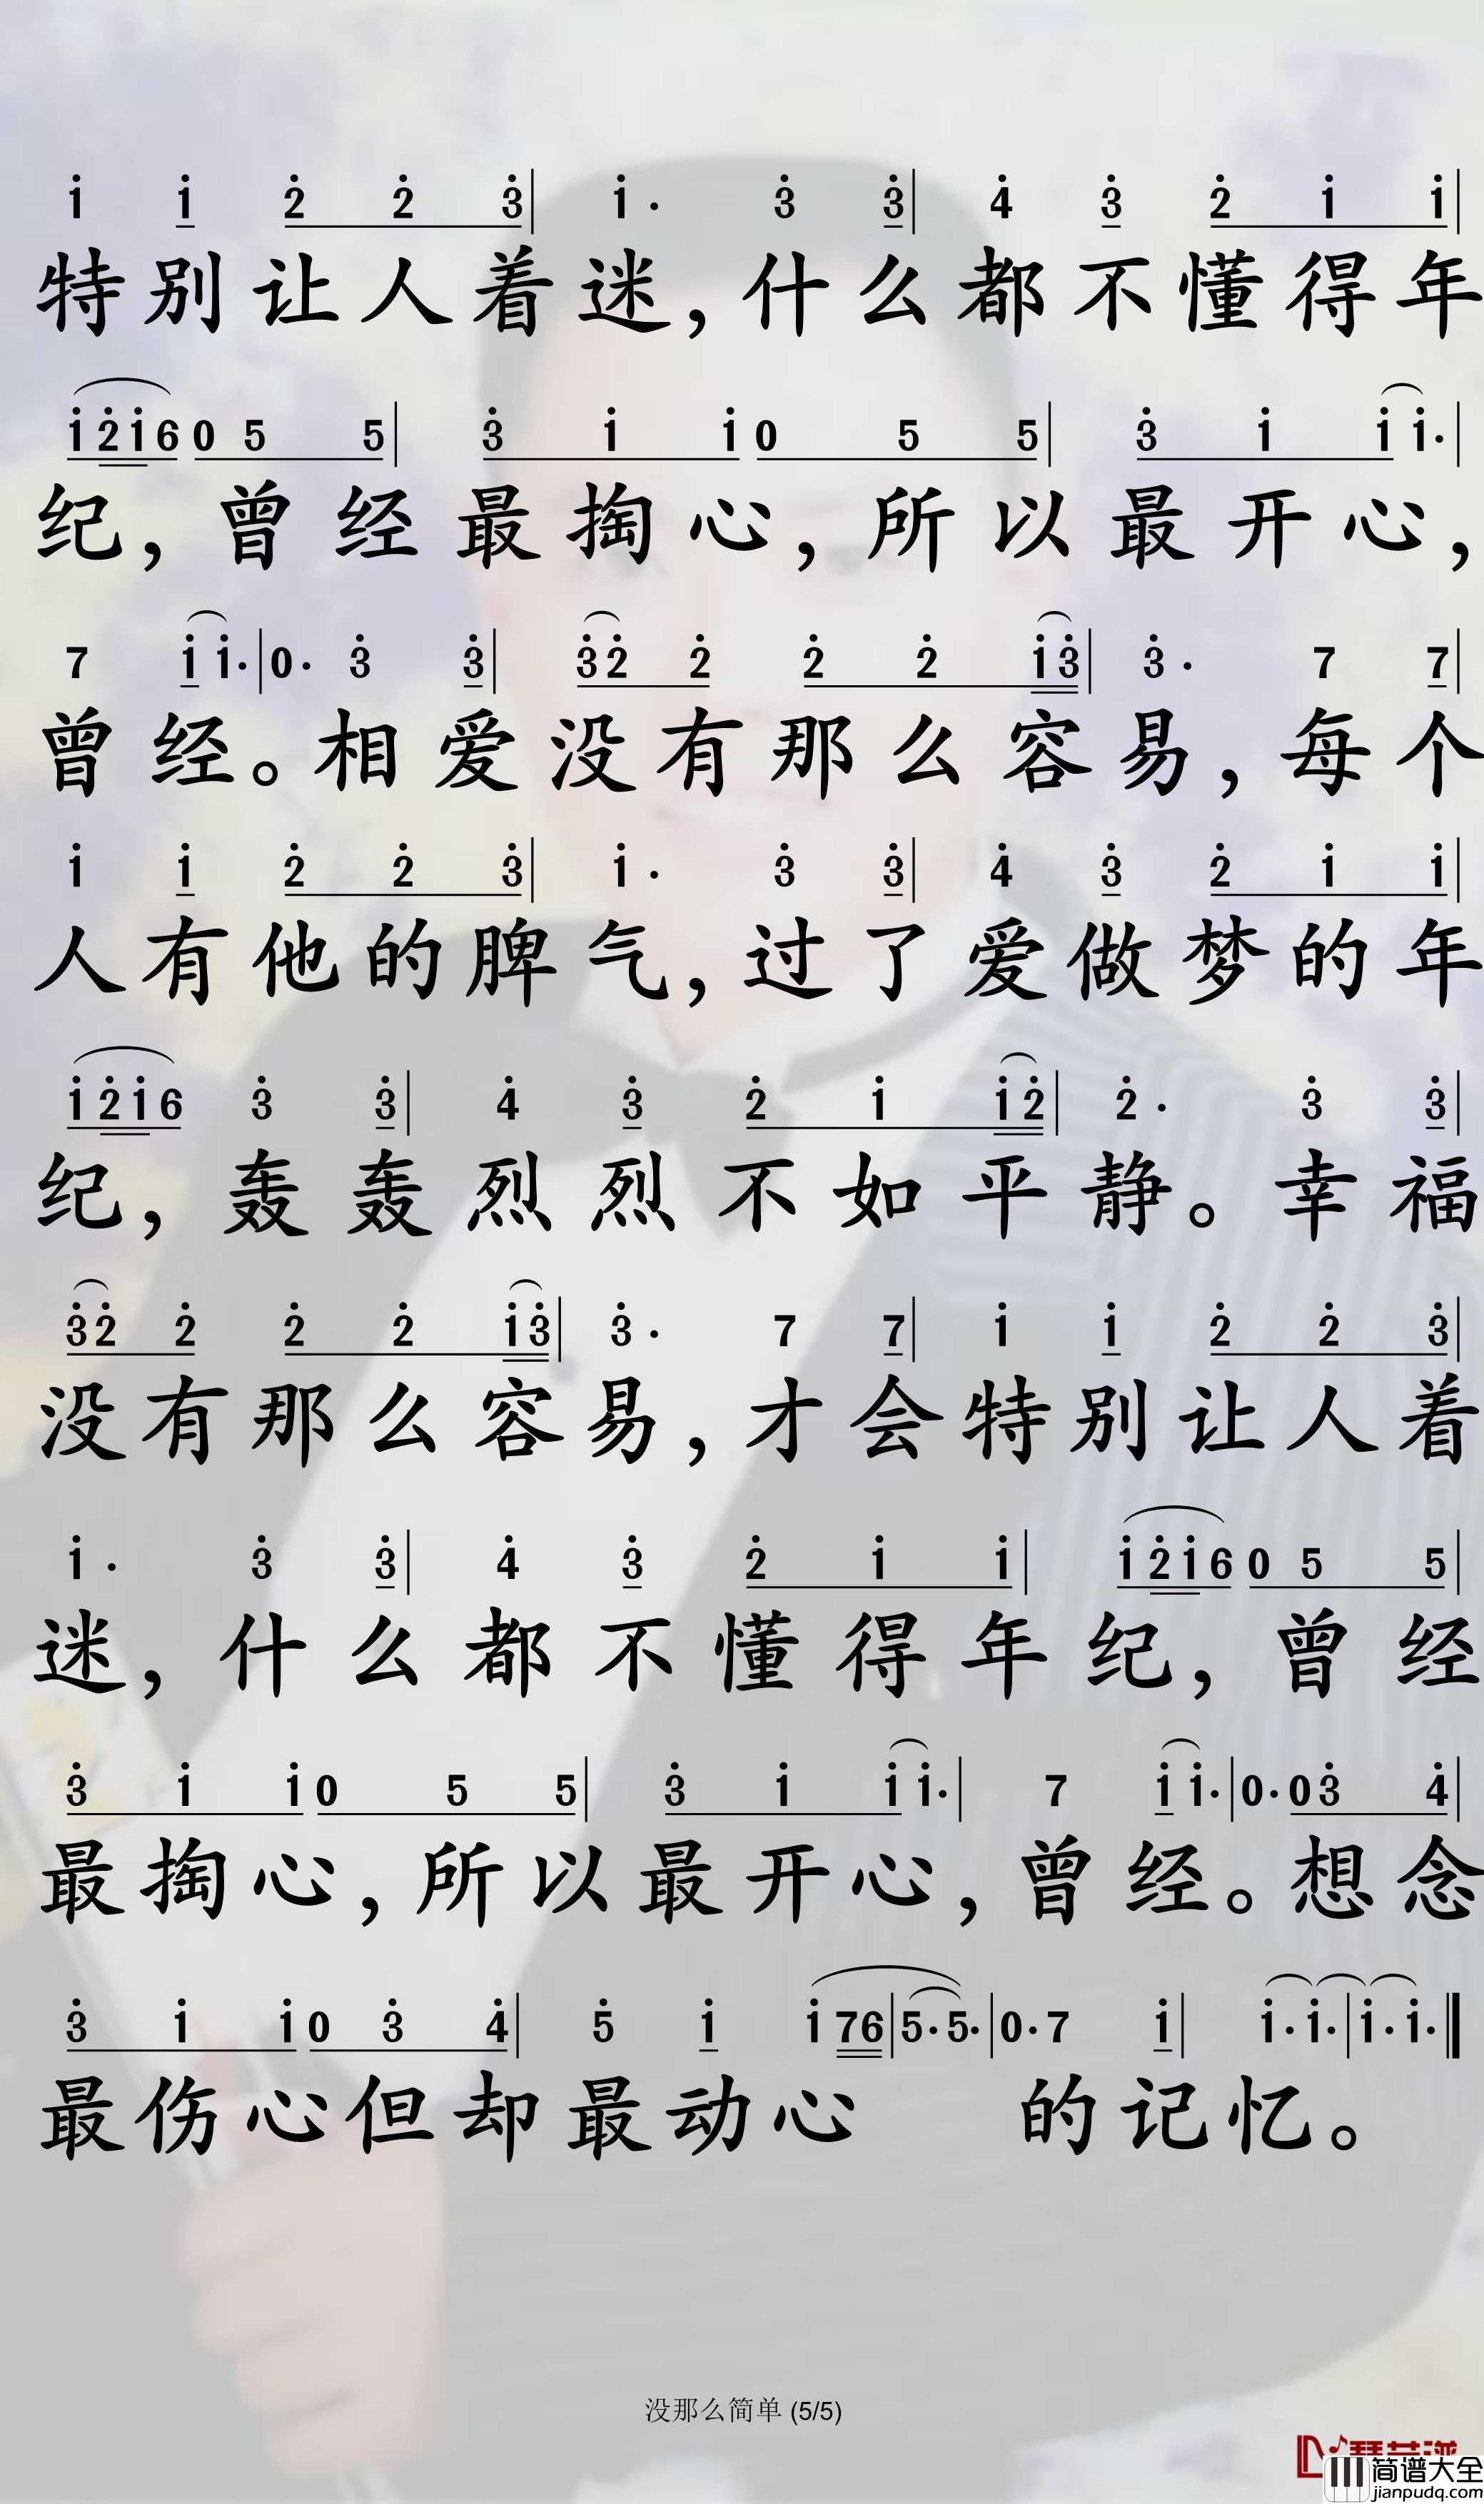 1 1 2 2 3 | 1 · 3 3 | 4 3 2 1 1 |
特别让人着迷，什么都不懂得年
1 2 1 6 0 5 5 | 3 1 1 0 5 5 | 3 1 1 1 · |
纪，曾经最掏心，所以最开心，
7 1 1 · | 0 · 3 3 | 3 2 2 2 2 1 3 | 3 · 7 7 |
曾经。相爱没有那么容易，每个
1 1 2 2 3 | 1 · 3 3 | 4 3 2 1 1 |
人有他的脾气，过了爱做梦的年
1 2 1 6 3 3 | 4 3 2 1 1 2 | 2 · 3 3 |
纪，轰轰烈烈不如平静。幸福
3 2 2 2 2 1 3 | 3 · 7 7 | 1 1 2 2 3 |
没有那么容易，才会特别让人着
1 · 3 3 | 4 3 2 1 1 | 1 2 1 6 0 5 5 |
迷，什么都不懂得年纪，曾经
3 1 1 0 5 5 | 3 1 1 1 · | 7 1 1 · | 0 · 0 3 4 |
最掏心，所以最开心，曾经。想念
3 1 1 0 3 4 | 5 1 1 7 6 | 5 · 5 · | 0 · 7 1 | 1 · 1 · | 1 · 1 · |
最伤心但却最动心 的记忆。
没那么简单 (5/5)
简谱大全
jianpudq.com